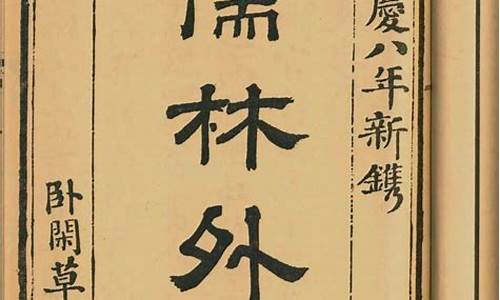 慶八年新鐫
儒林外
卧閑草